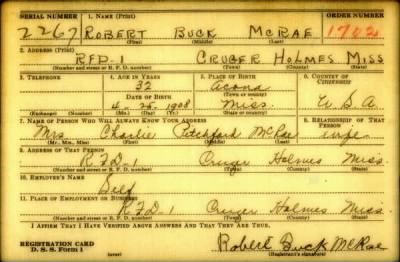 SERIAL NUMBER 1. NAME (Print) ORDER NUMBER
2267 ROBERT BUCK MCRAE 1702
(First) (Middle) (Last)
2. ADDRESS (Print)
RFD-1 CRUGER HOLMES MISS
(Number and street or R. F. D. number) (Town) (County) (State)
3. TELEPHONE 4. AGE IN YEARS 5. PLACE OF BIRTH 6. COUNTRY OF CITIZENSHIP
32 Acona
DATE OF BIRTH (Town or county)
4-25-1908 Miss. U.S.A
(Exchange) (Number) (Mo.) (Day) (Yr.) (State or country)
7. NAME OF PERSON WHO WILL ALWAYS KNOW YOUR ADDRESS 8. RELATIONSHIP OF THAT PERSON
Mrs. Charlie Pitchford McRae wife
(Mr., Mrs., Miss) (First) (Middle) (Last)
9. ADDRESS OF THAT PERSON
RFD-1 Cruger Holmes Miss.
(Number and street or R. F. D. number) (Town) (County) (State)
10. EMPLOYER'S NAME
Self
11. PLACE OF EMPLOYMENT OR BUSINESS
RFD-1 Cruger Holmes Miss.
(Number and street or R. F. D. number) (Town) (County) (State)
I AFFIRM THAT I HAVE VERIFIED ABOVE ANSWERS AND THAT THEY ARE TRUE.
REGISTRATION CARD Robert Buck McRae
D. S. S. Form 1 (Registrant's signature)